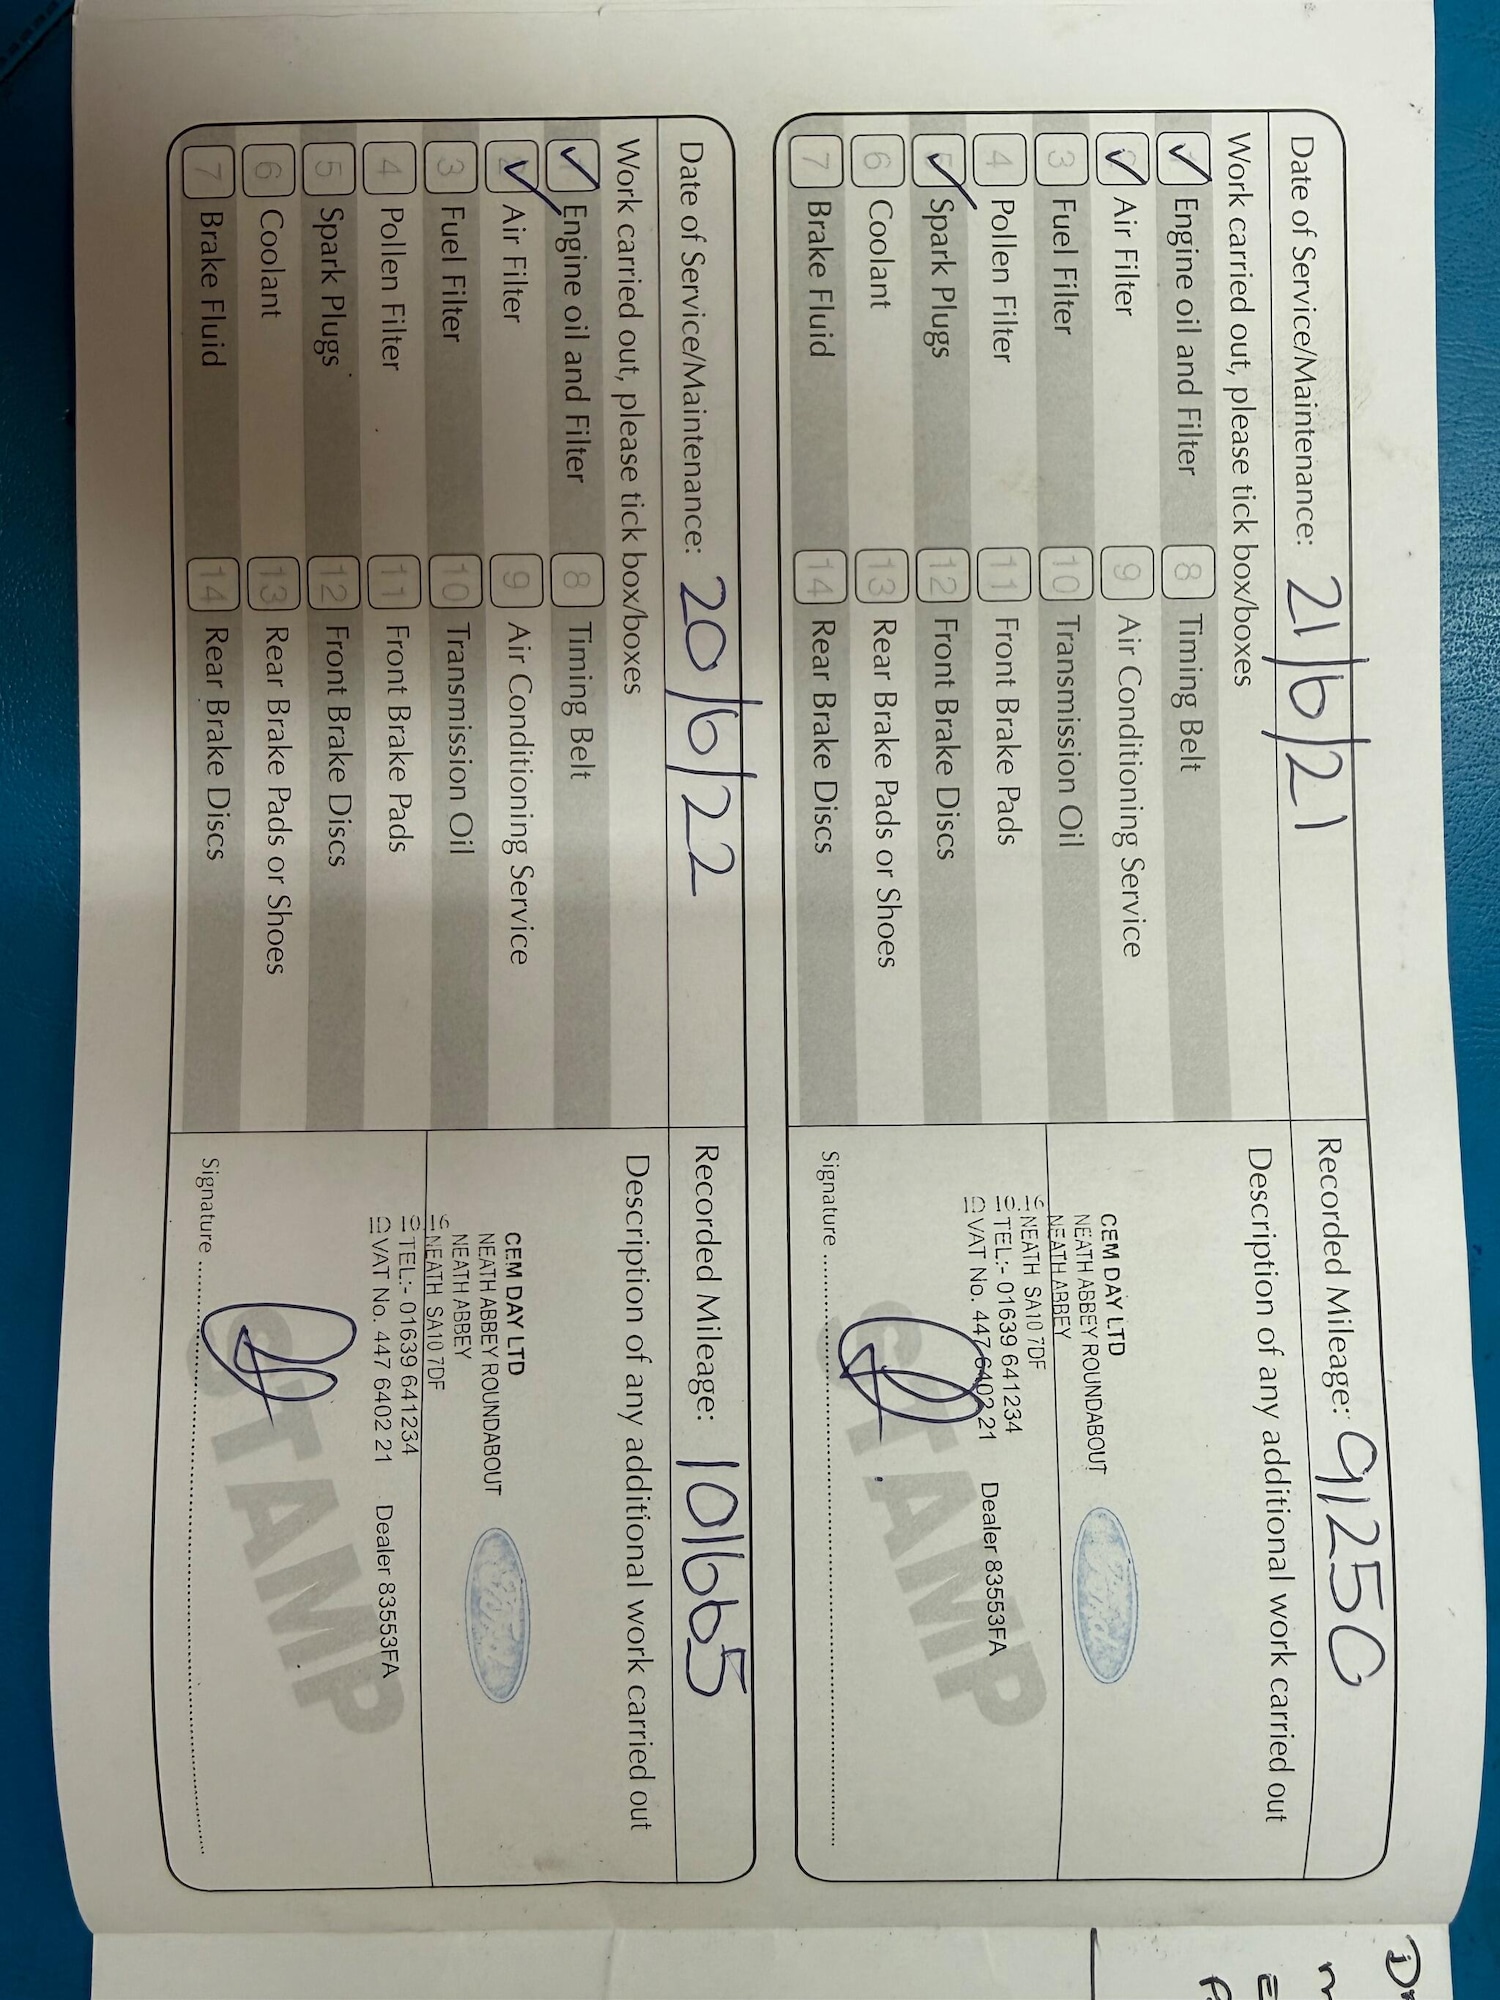 Date of Service/Maintenance: 21/6/21 Recorded Mileage: 91250
Work carried out, please tick box/boxes
Description of any additional work carried out
1 Engine oil and Filter 8 Timing Belt
2 Air Filter 9 Air Conditioning Service
3 Fuel Filter 10 Transmission Oil
4 Pollen Filter 11 Front Brake Pads
5 Spark Plugs 12 Front Brake Discs
6 Coolant 13 Rear Brake Pads or Shoes
7 Brake Fluid 14 Rear Brake Discs
CEM DAY LTD
NEATH ABBEY ROUNDABOUT
NEATH ABBEY
NEATH SA10 7DF
TEL:- 01639 641234
VAT No. 447 6402 21 Dealer 83553FA
STAMP
Signature
Date of Service/Maintenance: 20/6/22 Recorded Mileage: 101665
Work carried out, please tick box/boxes
Description of any additional work carried out
1 Engine oil and Filter 8 Timing Belt
2 Air Filter 9 Air Conditioning Service
3 Fuel Filter 10 Transmission Oil
4 Pollen Filter 11 Front Brake Pads
5 Spark Plugs 12 Front Brake Discs
6 Coolant 13 Rear Brake Pads or Shoes
7 Brake Fluid 14 Rear Brake Discs
CEM DAY LTD
NEATH ABBEY ROUNDABOUT
NEATH ABBEY
NEATH SA10 7DF
TEL:- 01639 641234
VAT No. 447 6402 21 Dealer 83553FA
STAMP
Signature